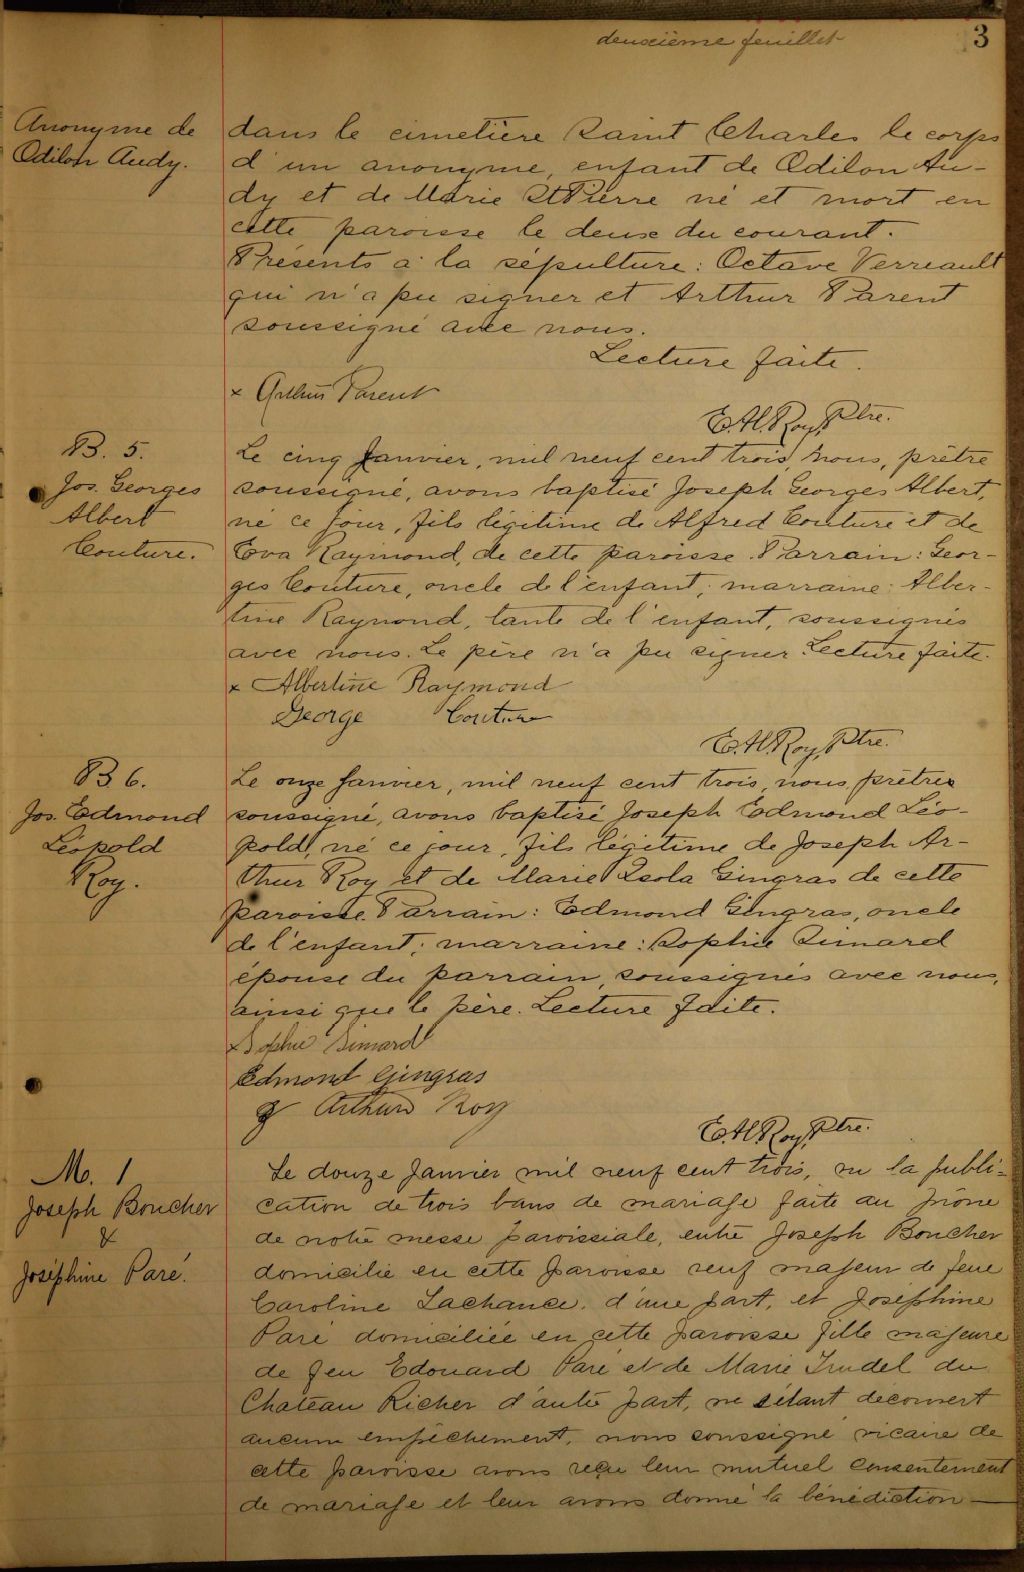 deuxième feuillet
3
Anonyme de
Odilon Audy.
dans le cimetière Saint Charles le corps
d'un anonyme, enfant de Odilon Au-
dy et de Marie St Pierre né et mort en
cette paroisse le deux du courant.
Présents à la sépulture : Octave Verreault
qui n'a pu signer et Arthur Parent
soussigné avec nous.
Lecture faite.
x Arthur Parent
E.H.Roy, Ptre.
B. 5.
Jos. Georges
Albert
Couture.
Le cinq Janvier, mil neuf cent trois, nous, prêtre
soussigné, avons baptisé Joseph Georges Albert,
né ce jour, fils légitime de Alfred Couture et de
Eva Raymond, de cette paroisse. Parrain : Geor-
ges Couture, oncle de l'enfant; marraine : Alber-
tine Raymond, tante de l'enfant, soussignés
avec nous. Le père n'a pu signer. Lecture faite.
x Albertine Raymond
George Couture
E.H.Roy, Ptre.
B 6.
Jos. Edmond
Léopold
Roy.
Le onze Janvier, mil neuf cent trois, nous prêtres
soussigné, avons baptisé Joseph Edmond Léo-
pold, né ce jour, fils légitime de Joseph Ar-
thur Roy et de Marie Zsola Gingras de cette
paroisse. Parrain : Edmond Gingras, oncle
de l'enfant; marraine : Sophie Simard
épouse du parrain, soussignés avec nous,
ainsi que le père. Lecture faite.
x Sophie Simard
Edmond Gingras
J Arthur Roy
E.H.Roy, Ptre.
M. 1
Joseph Boucher
&
Joséphine Paré.
Le douze Janvier mil neuf cent trois, vu la publi-
cation de trois bans de mariage faite au prône
de notre messe paroissiale, entre Joseph Boucher
domicilié en cette paroisse veuf majeur de feue
Caroline Lachance, d'une part, et Joséphine
Paré domiciliée en cette paroisse fille majeure
de feu Edouard Paré et de Marie Trudel du
Chateau Richer d'autre part, ne s'étant découvert
aucun empêchement, nous soussigné vicaire de
cette paroisse avons reçu leur mutuel consentement
de mariage et leur avons donné la bénédiction —